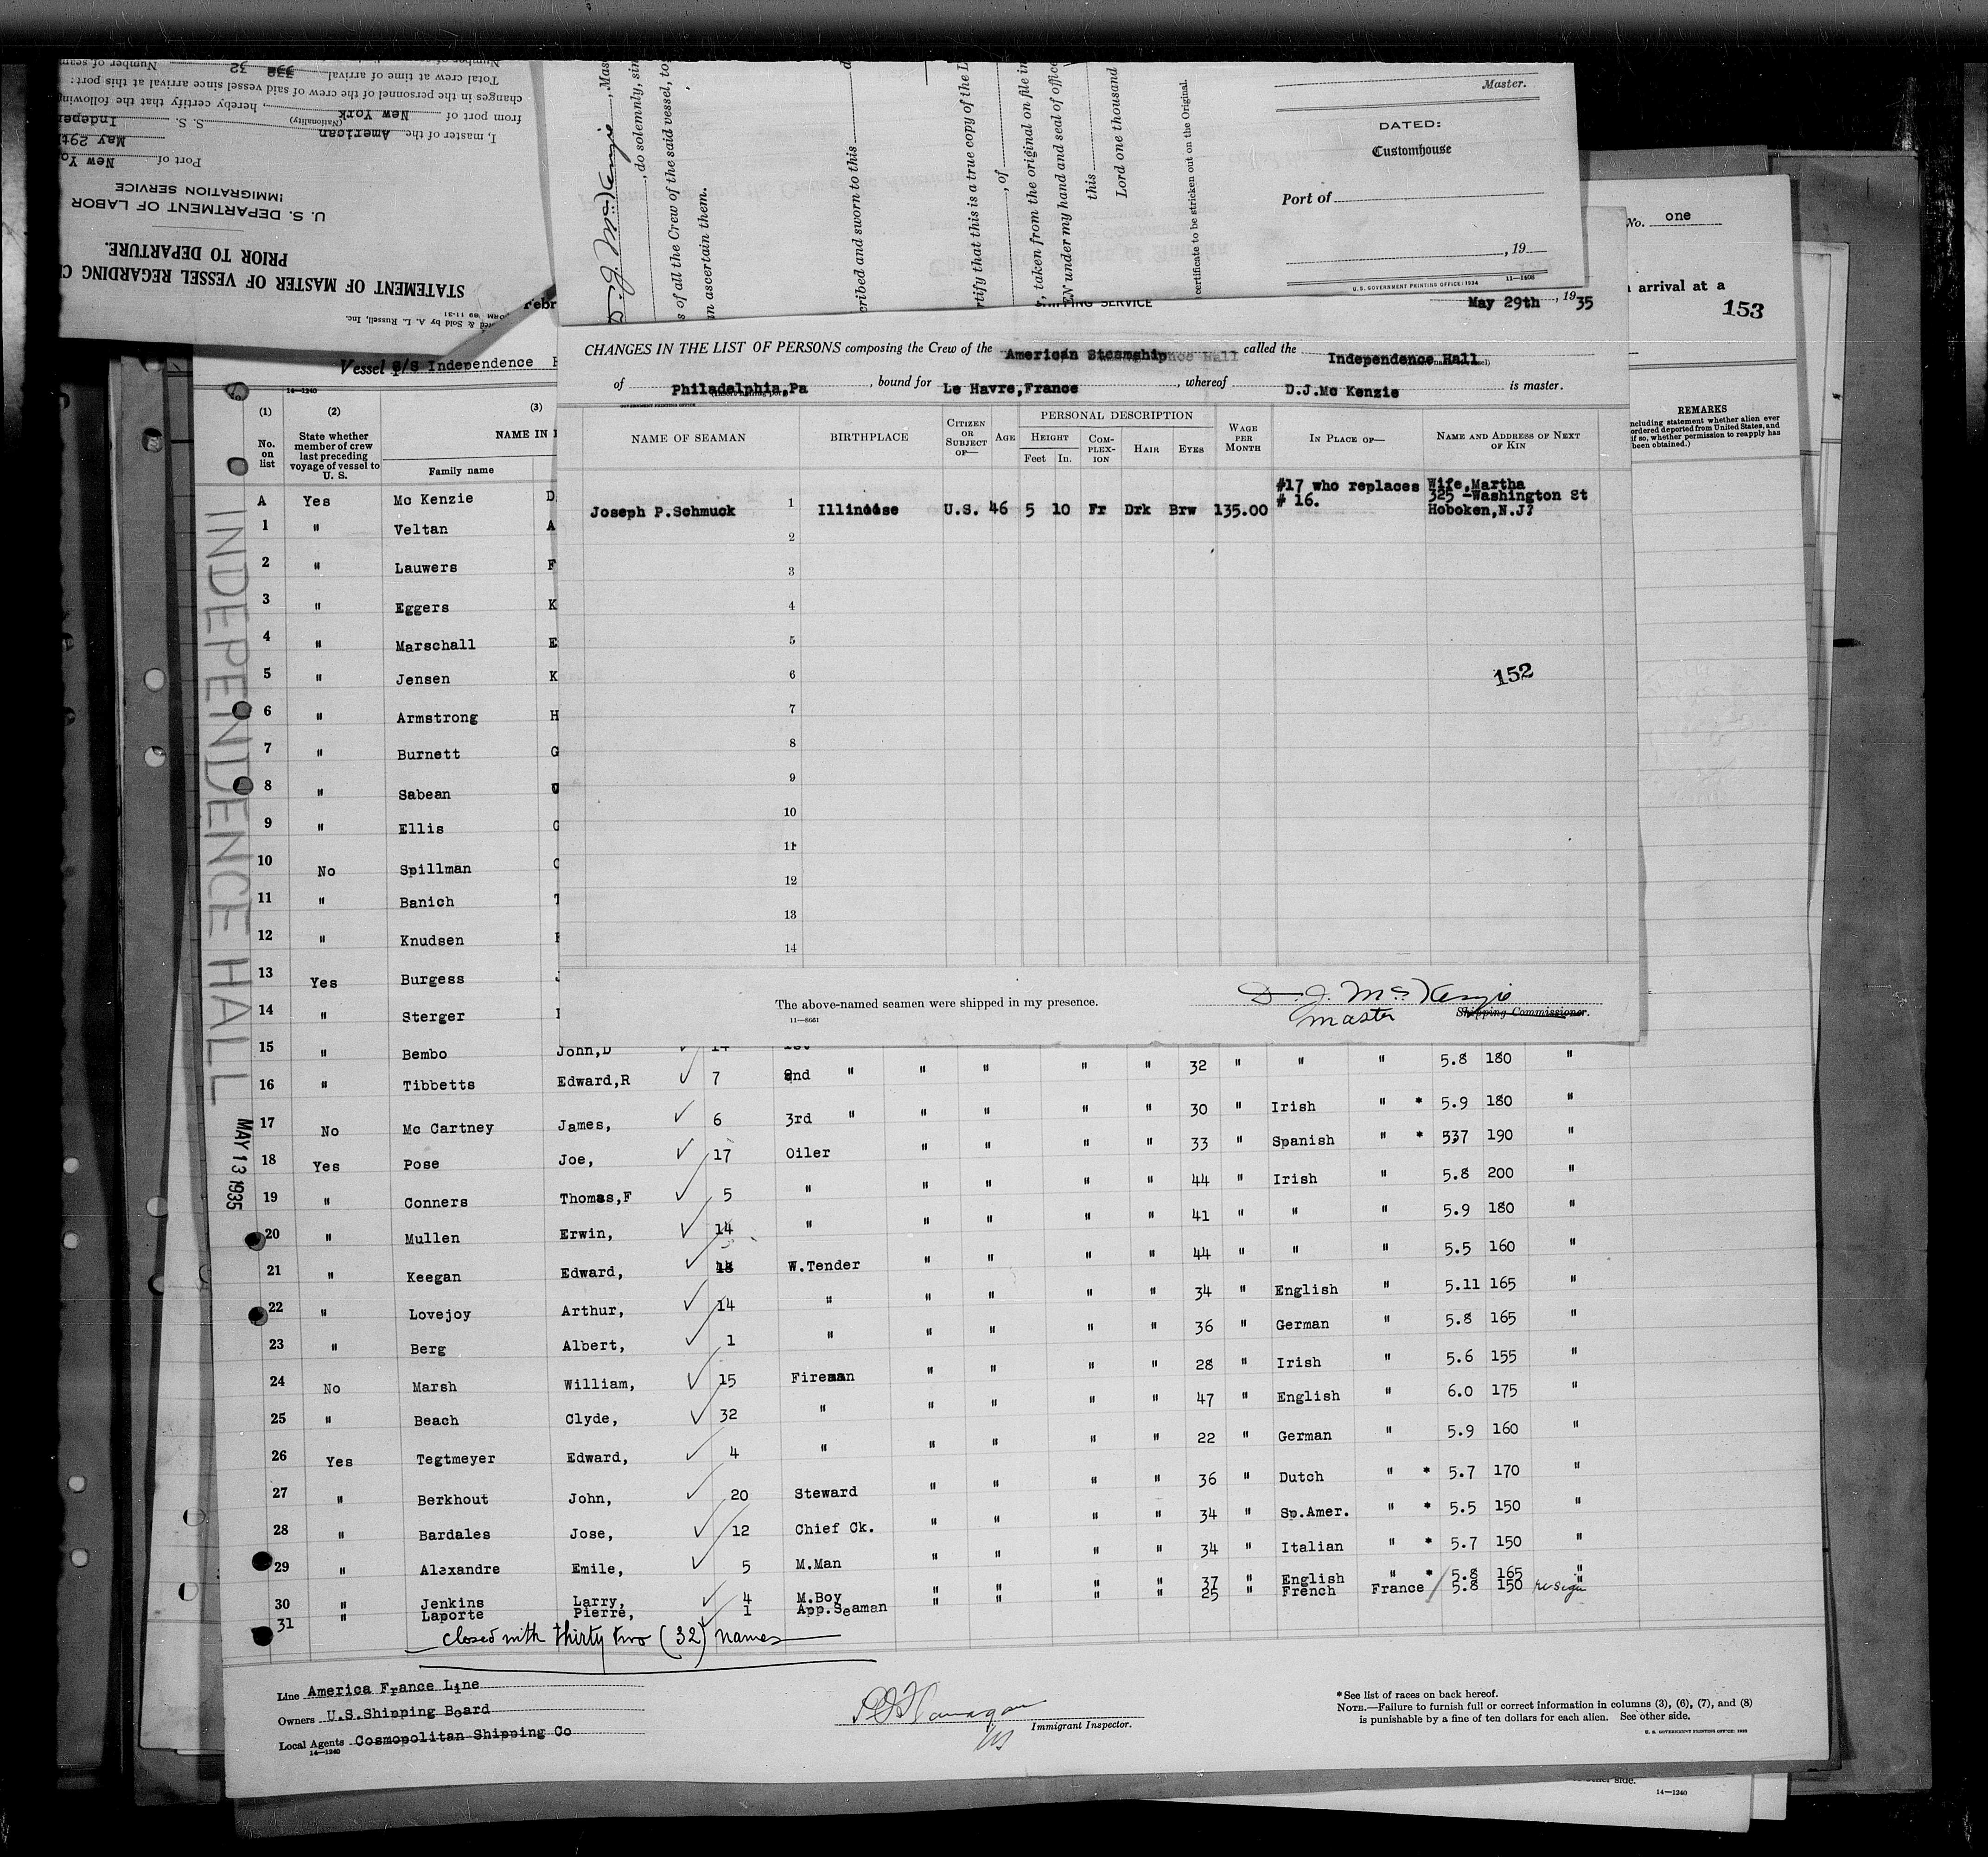 STATEMENT OF MASTER OF VESSEL REGARDING
PRIOR TO DEPARTURE.
U. S. DEPARTMENT OF LABOR
IMMIGRATION SERVICE
Port of New Yo
May 29th
I, master of the American S. S. Indepen
(Nationality)
from port of New York, hereby certify that the following
changes in the personnel of the crew of said vessel since arrival at this port:
Total crew at time of arrival 32 Number of seam
& Sold by A. L. Russell, Inc.
D. J. McKenzie, Mas
, do solemnly, sin
s of all the Crew of the said vessel, to
n ascertain them.
cribed and sworn to this
rtify that this is a true copy of the L
, of
, taken from the original on file in
EN under my hand and seal of office
this
Lord one thousand
certificate to be stricken out on the Original.
Master.
DATED:
Customhouse
Port of
, 19
U.S. GOVERNMENT PRINTING OFFICE: 1934 11—1406
No. one
arrival at a
153
SERVICE
May 29th, 1935
CHANGES IN THE LIST OF PERSONS composing the Crew of the American Steamship called the Independence Hall
of Philadelphia,Pa, bound for Le Havre,France, whereof D.J.Mc Kenzie is master.
GOVERNMENT PRINTING OFFICE
NAME OF SEAMAN BIRTHPLACE CITIZEN OR SUBJECT OF— AGE PERSONAL DESCRIPTION WAGE PER MONTH IN PLACE OF— NAME AND ADDRESS OF NEXT OF KIN
HEIGHT COMPLEXION HAIR EYES
Feet In.
#17 who replaces Wife,Martha
# 16. 325 -Washington St
Joseph P.Schmuck 1 U.S. 46 5 10 Fr Drk Brw 135.00 Hoboken,N.J?
2
3
4
5
6
152
7
8
9
10
11
12
13
14
The above-named seamen were shipped in my presence.
11—8651
D. J. McKenzie
master
Shipping Commissioner.
Vessel S/S Independence H
14—1240
(1) (2) (3)
No. on list
State whether member of crew last preceding voyage of vessel to U. S.
NAME IN
Family name
REMARKS
ncluding statement whether alien ever
ordered deported from United States, and
if so, whether permission to reapply has
been obtained.)
INDEPENDENCE HALL
MAY 13 1935
A Yes Mc Kenzie D
1 " Veltan A
2 " Lauwers F
3 " Eggers K
4 " Marschall E
5 " Jensen K
6 " Armstrong H
7 " Burnett G
8 " Sabean
9 " Ellis G
10 No Spillman
11 " Banich
12 " Knudsen
13 Yes Burgess
14 " Sterger
15 " Bembo John,D 14 1st " " " " " 32 " " " 5.8 180 "
16 " Tibbetts Edward,R 7 2nd " " " " " 30 " Irish " * 5.9 180 "
17 No Mc Cartney James, 6 3rd " " " " " 33 " Spanish " * 537 190 "
18 Yes Pose Joe, 17 Oiler " " " " 44 " Irish " 5.8 200 "
19 " Conners Thomas,F 5 " " " " " 41 " " " 5.9 180 "
20 " Mullen Erwin, 14 " " " " " 44 " " " 5.5 160 "
21 " Keegan Edward, W.Tender " " " " 34 " English " 5.11 165 "
22 " Lovejoy Arthur, 14 " " " " " 36 " German " 5.8 165 "
23 " Berg Albert, 1 " " " " " 28 " Irish " 5.6 155 "
24 No Marsh William, 15 Fireman " " " " 47 " English " 6.0 175 "
25 " Beach Clyde, 32 " " " " " 22 " German " 5.9 160 "
26 Yes Tegtmeyer Edward, 4 " " " " " 36 " Dutch " * 5.7 170 "
27 " Berkhout John, 20 Steward " " " " 34 " Sp.Amer. " * 5.5 150 "
28 " Bardales Jose, 12 Chief Ck. " " " " 34 " Italian " * 5.7 150 "
29 " Alexandre Emile, 5 M.Man " " " " 37 " English " * 5.8 165 "
30 " Jenkins Larry, 4 M.Boy " " " " 25 " French France 5.8 150 "
31 " Laporte Pierre, 1 App.Seaman " " " "
closed with thirty two (32) names
Line America France Line
Owners U.S.Shipping Board
Local Agents Cosmopolitan Shipping Co
14—1240
Immigrant Inspector.
*See list of races on back hereof.
NOTE.—Failure to furnish full or correct information in columns (3), (6), (7), and (8)
is punishable by a fine of ten dollars for each alien. See other side.
U. S. GOVERNMENT PRINTING OFFICE: 1933
other side.
14—1240